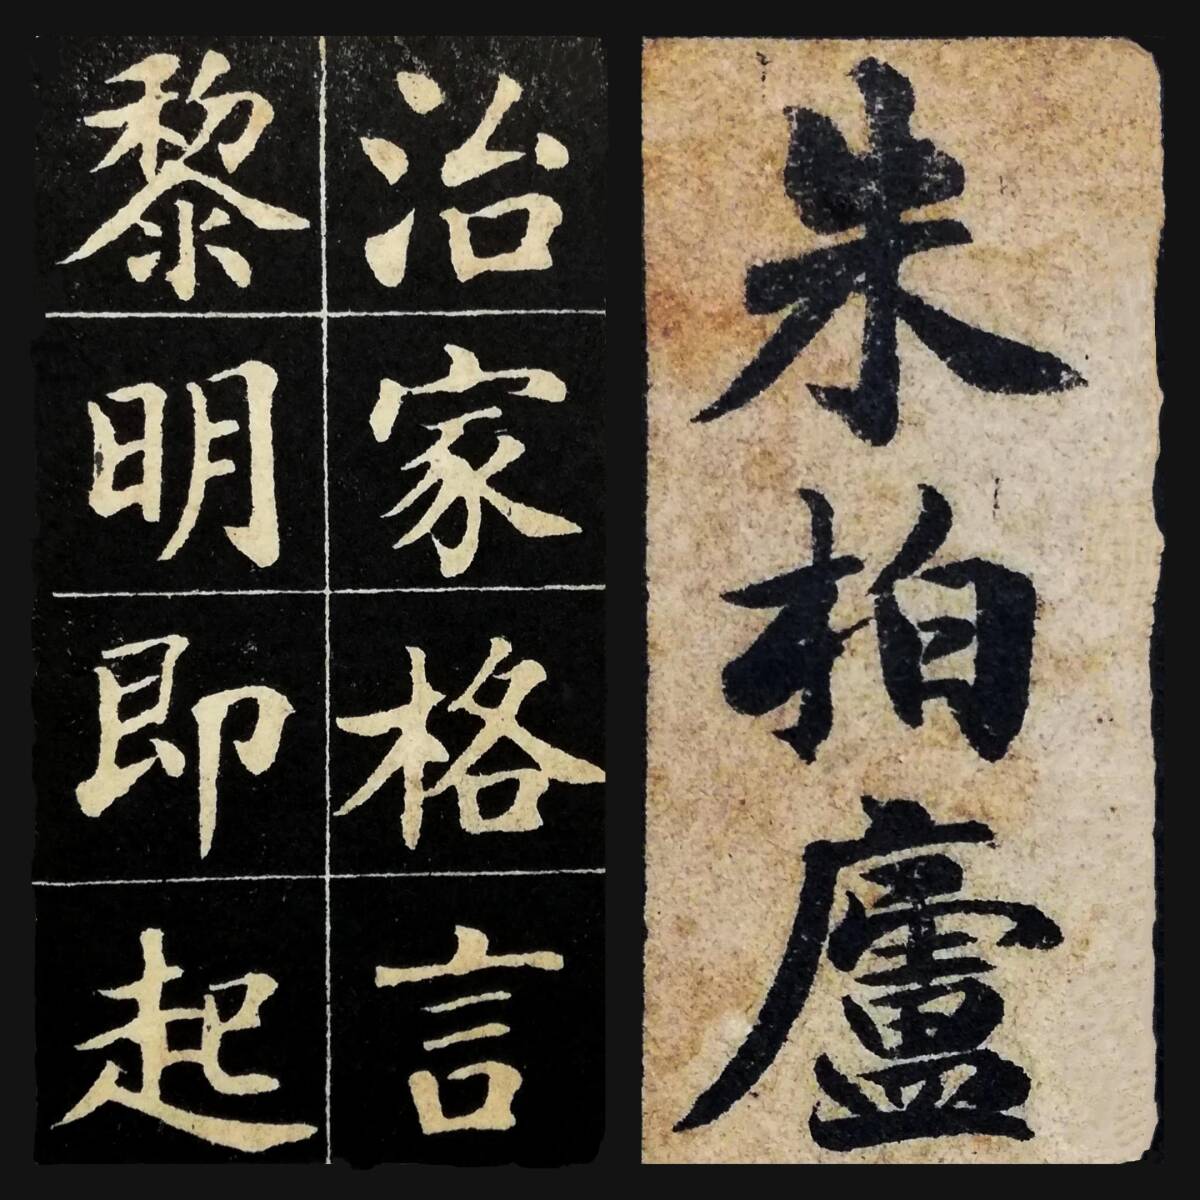 朱柏廬
治家格言
黎明即起